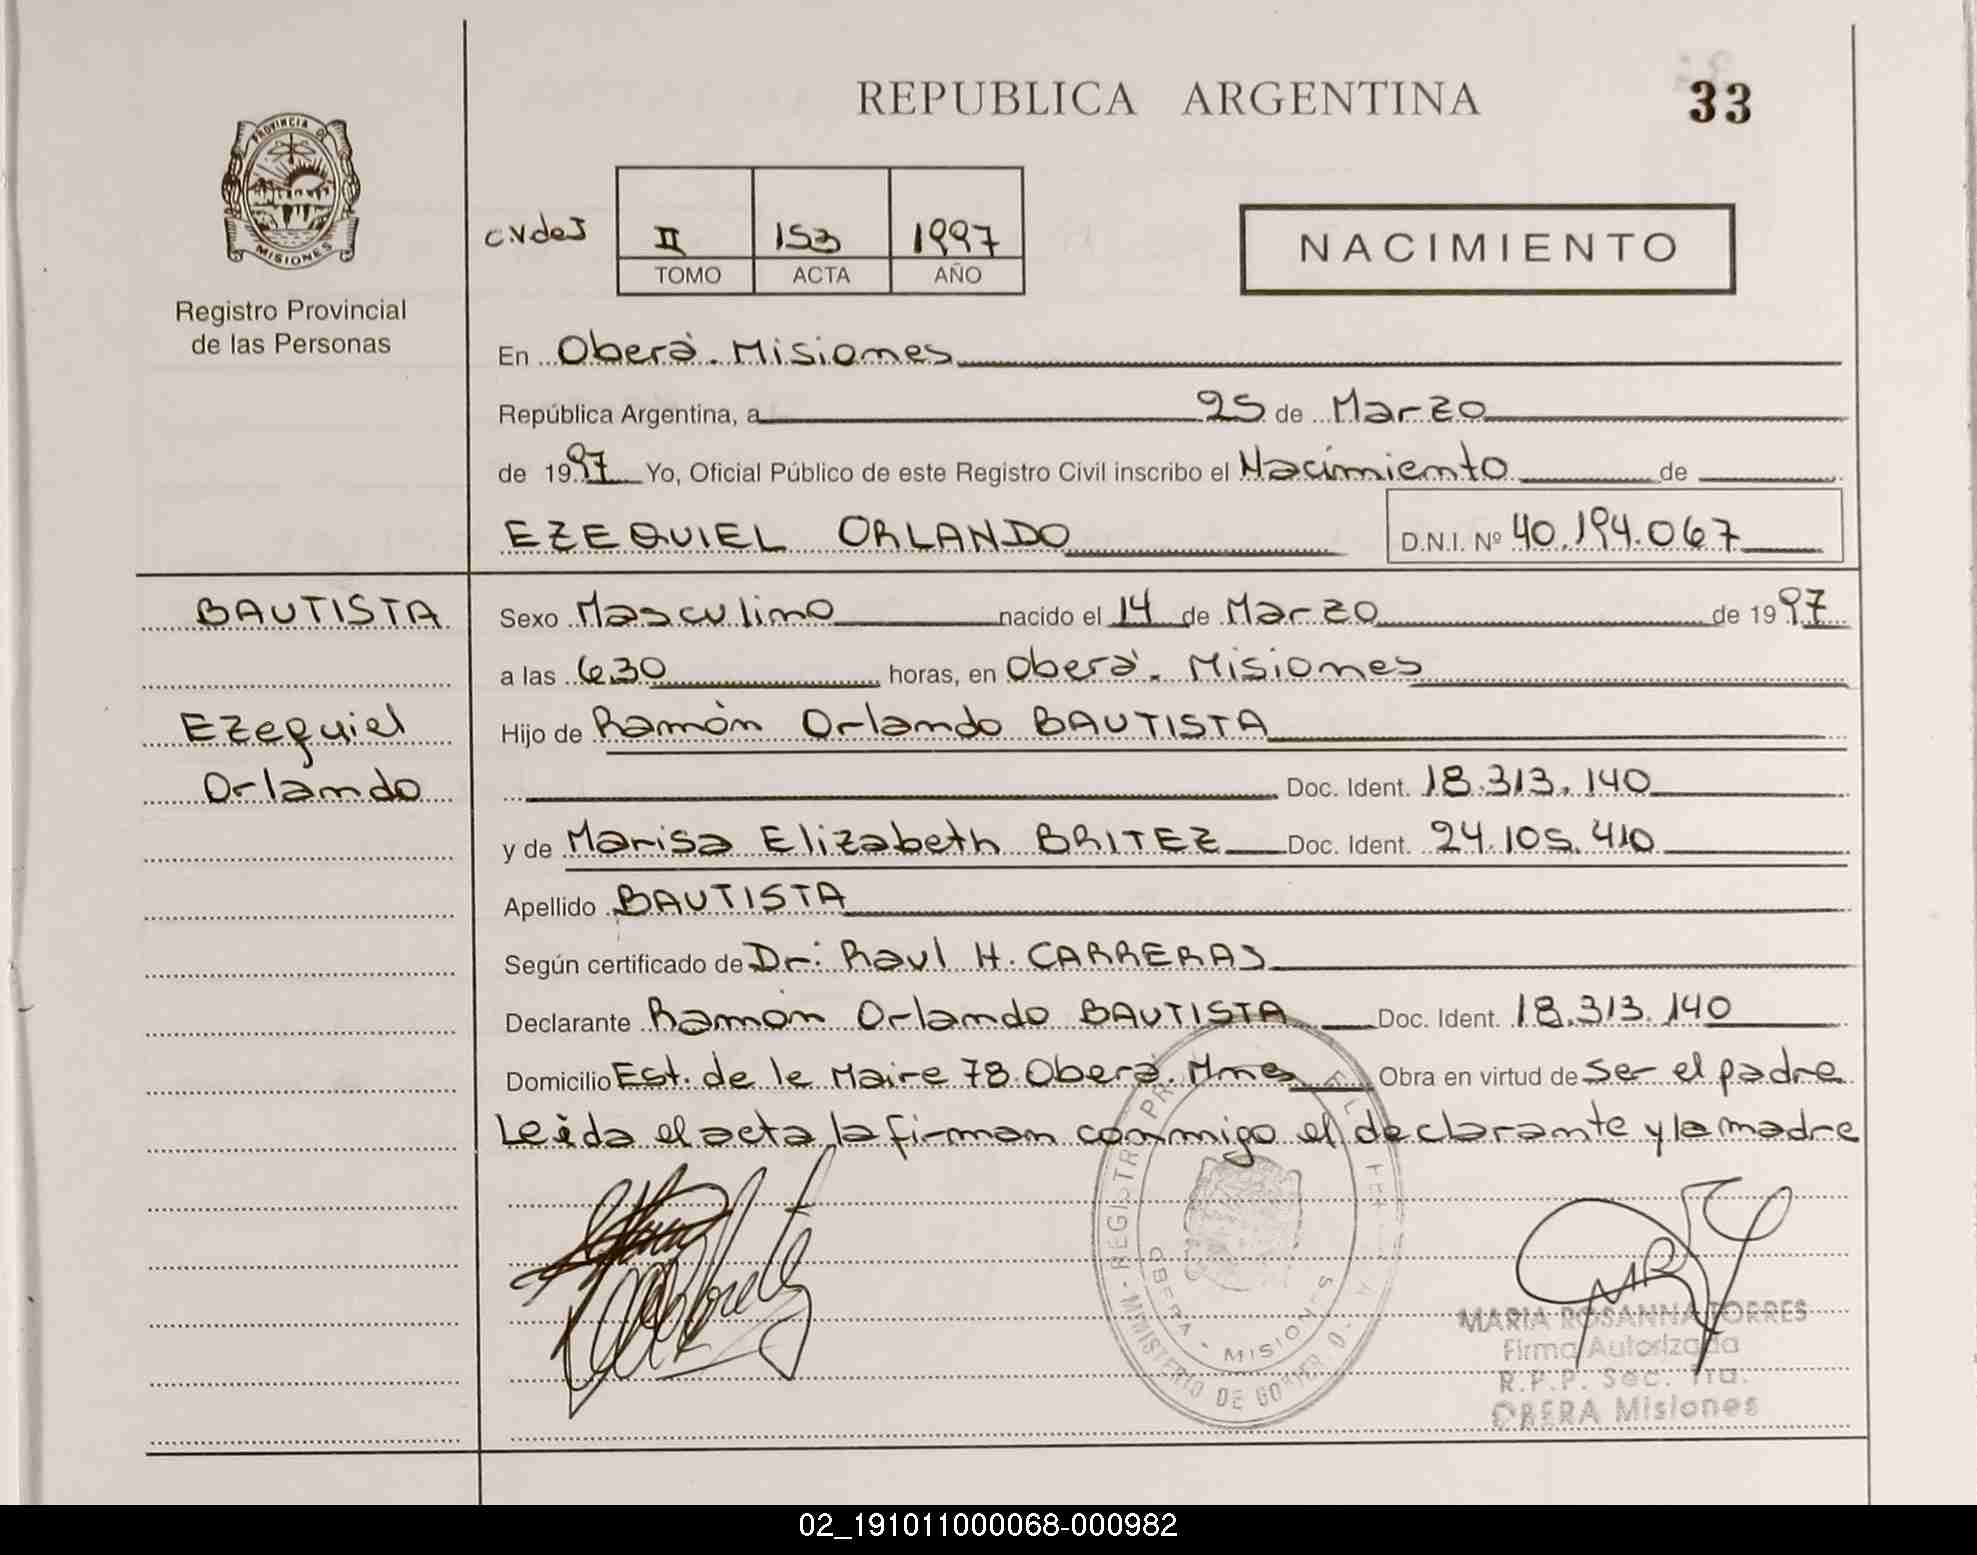 REPUBLICA ARGENTINA
33
PROVINCIA DE
MISIONES
Registro Provincial
de las Personas
C.V de J
II 153 1997
TOMO ACTA AÑO
NACIMIENTO
En Oberá. Misiones
República Argentina, a 25 de Marzo
de 1997 Yo, Oficial Público de este Registro Civil inscribo el Nacimiento de
EZEQUIEL ORLANDO D.N.I. Nº 40.194.067
BAUTISTA
Ezequiel
Orlando
Sexo Masculino nacido el 14 de Marzo de 1997
a las 6.30 horas, en Oberá. Misiones
Hijo de Ramón Orlando BAUTISTA
Doc. Ident. 18.313.140
y de Marisa Elizabeth BRITEZ Doc. Ident. 24.105.410
Apellido BAUTISTA
Según certificado de Dr: Raul H. CARRERAS
Declarante Ramón Orlando BAUTISTA Doc. Ident. 18.313.140
Domicilio Est. de le Maire 78. Oberá. Mnes Obra en virtud de ser el padre
Leída el acta la firman conmigo el declarante y la madre
OBERA - MISIONES
MINISTERIO DE
MARIA ROSANNA TORRES
Firma Autorizada
R.P.P. Sec. 1ra.
OBERA Misiones
02_191011000068-000982